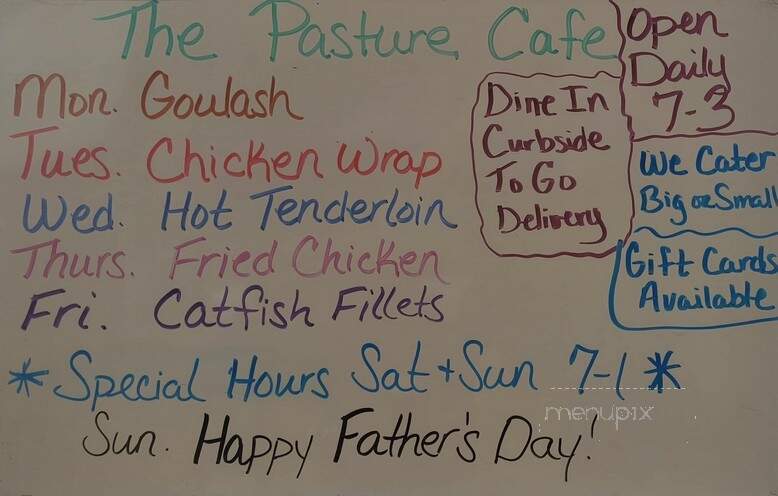 The Pasture Cafe
Open
Daily
7-3
Mon. Goulash
Tues. Chicken Wrap
Wed. Hot Tenderloin
Thurs. Fried Chicken
Fri. Catfish Fillets
Dine In
Curbside
To Go
Delivery
We Cater
Big or Small
Gift Cards
Available
* Special Hours Sat + Sun 7-1 *
Sun. Happy Father's Day!
menupix